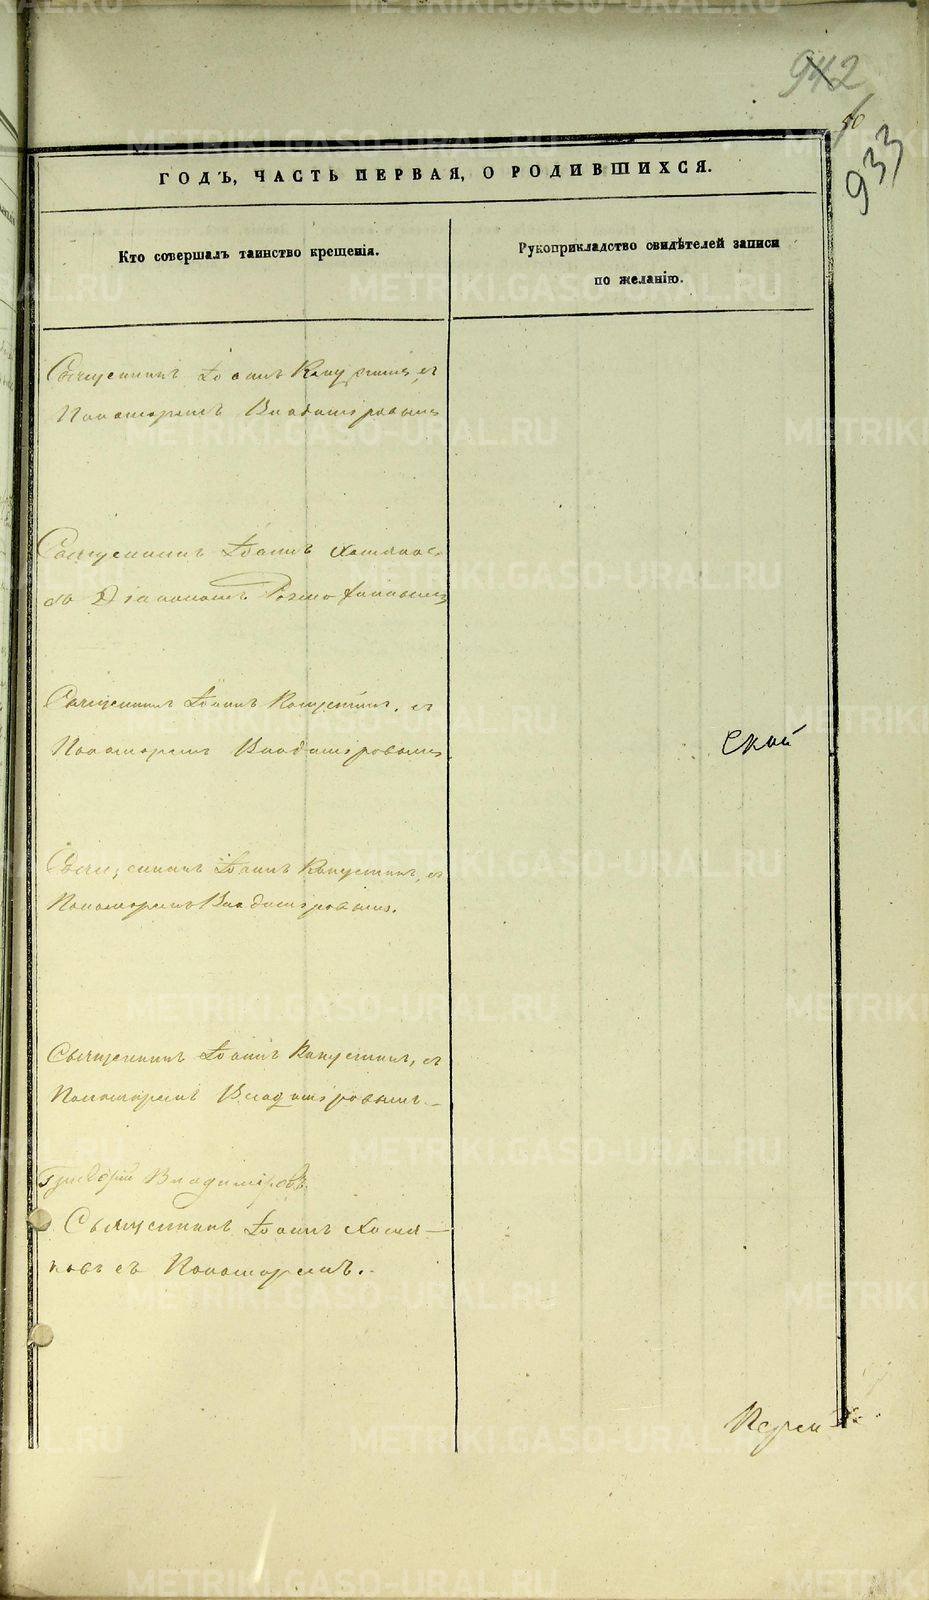 942
933
ГОДЪ, ЧАСТЬ ПЕРВАЯ, О РОДИВШИХСЯ.
Кто совершалъ таинство крещенія.
Рукоприкладство свидѣтелей записи
по желанію.
Священникъ Іоаннъ Капустинъ, съ
Пономаремъ Владиміровымъ
Священникъ Іоаннъ Хомяковъ
съ Діакономъ
Священникъ Іоаннъ Капустинъ, съ
Пономаремъ Владиміровымъ
ской
Священникъ Іоаннъ Капустинъ, съ
Пономаремъ Владиміровымъ.
Священникъ Іоаннъ Капустинъ, съ
Пономаремъ Владиміровымъ.
Григорій Владиміровъ
Священникъ Іоаннъ Хомя-
ковъ съ Пономаремъ.
METRIKI.GASO-URAL.RU